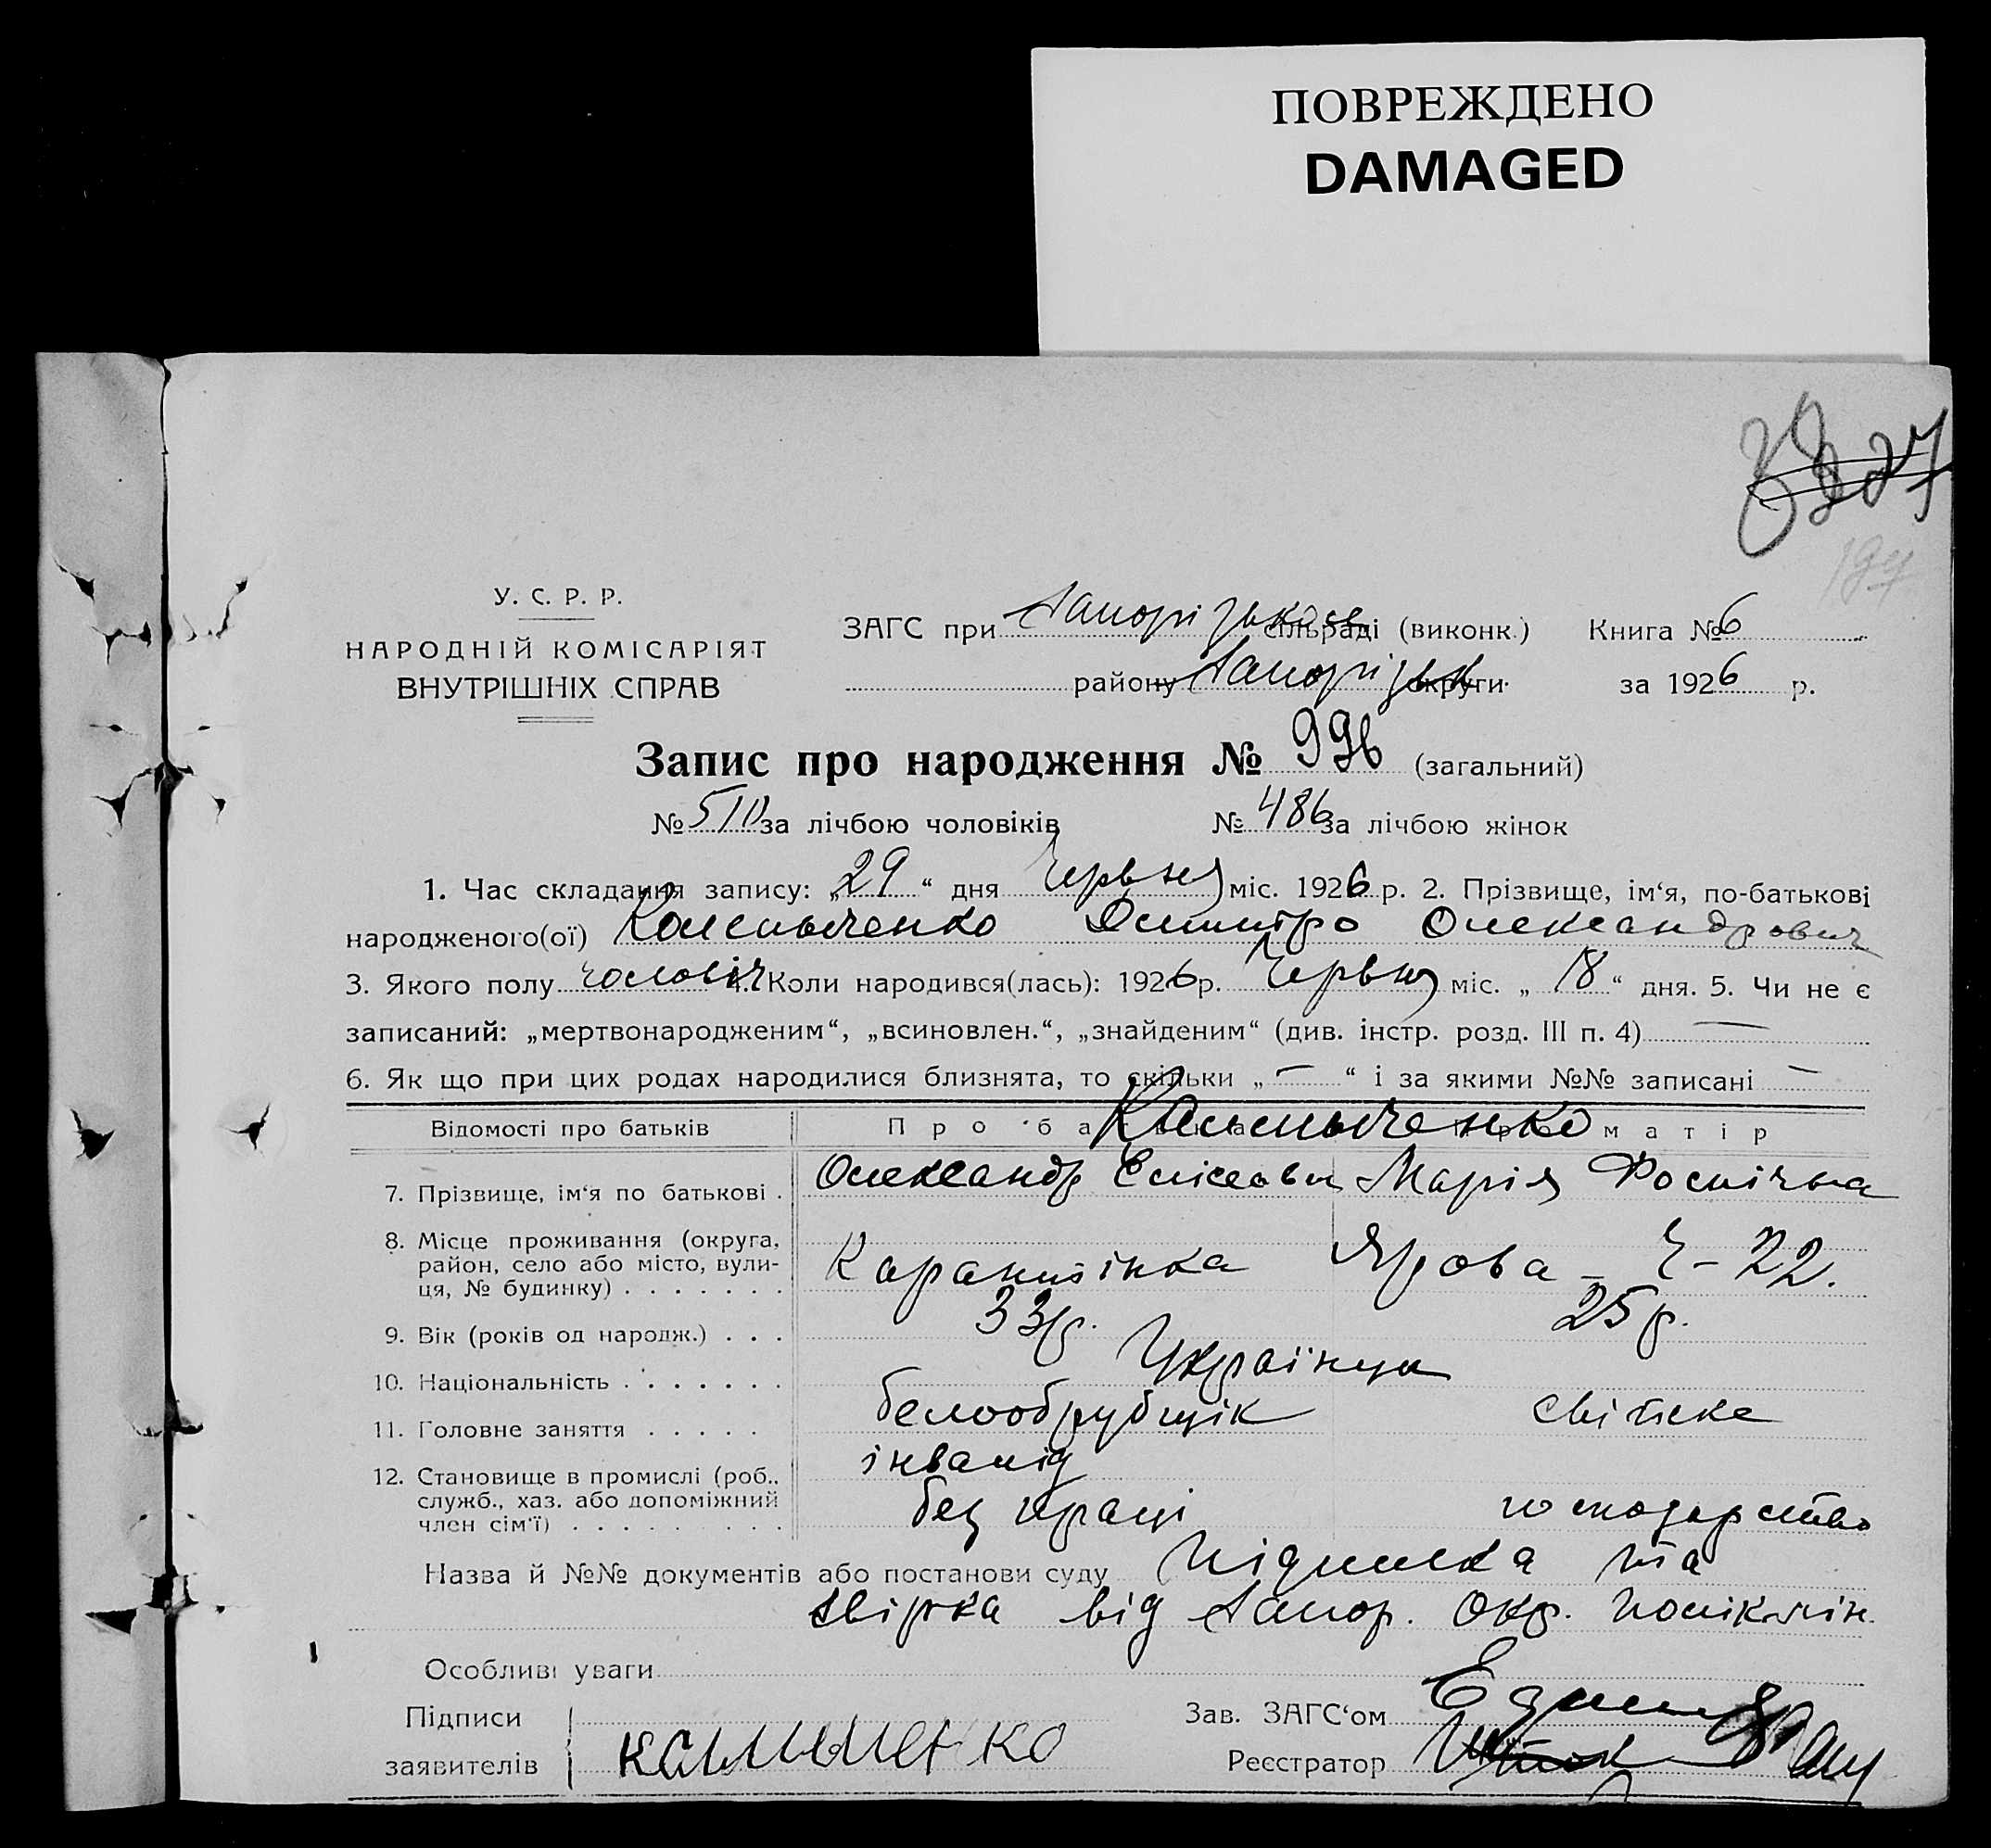 ПОВРЕЖДЕНО
DAMAGED
194
У. С. Р. Р.
НАРОДНІЙ КОМІСАРІЯТ
ВНУТРІШНІХ СПРАВ
ЗАГС при Запорізьков сільраді (виконк.) Книга № 6
району Запорізьк округи за 1926 р.
Запис про народження № 996 (загальний)
№ 510 за лічбою чоловіків № 486 за лічбою жінок
1. Час складання запису: „29“ дня Червня міс. 1926 р. 2. Прізвище, ім‘я, по-батькові
народженого(ої) Дмитро Олександрович
3. Якого полу чоловіч 4. Коли народився(лась): 1926 р. Червня міс. „18“ дня. 5. Чи не є
записаний: „мертвонародженим“, „всиновлен.“, „знайденим“ (див. інстр. розд. III п. 4) —
6. Як що при цих родах народилися близнята, то скільки „—“ і за якими №№ записані —
Відомості про батьків Про батька Про матір
7. Прізвище, ім‘я по батькові . Олександр Єлісеєвич Марія
8. Місце проживання (округа,
район, село або місто, вули-
ця, № будинку) . . . . . . . Карантінка Ярова - 22.
9. Вік (років од народж.) . . . 33 р. 25 р.
10. Національність . . . . . . . Українці
11. Головне заняття . . . . . інвалід
12. Становище в промислі (роб.,
служб., хаз. або допоміжний
член сім‘ї) . . . . . . . . . без праці господарство
Назва й №№ документів або постанови суду Підписка та
звірка від Запор. Окр. поліклін.
Особливі уваги
Підписи
заявителів
Зав. ЗАГС‘ом
Реєстратор